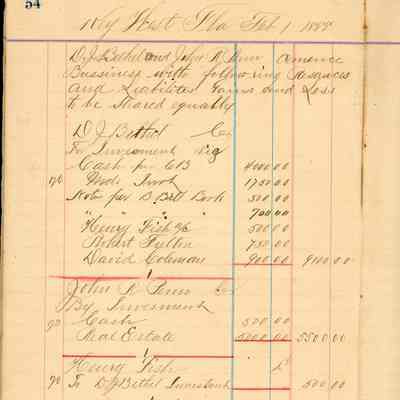 54
Key West Fla Feb 1 1888
D. J. Bethel and John R. Penn Comence
Bussiness with following Resources
and Liabilites Gains and Loss
to be shared equally
D J Bethel Cr
By Invesment
Cash per CB 4000 00
90 Mds Invt 1750 00
Notes per B Bill Book 500 00
" " " " 700 00
Henry Fish % 500 00
Robert Fuller 750 00
David Coleman 900 00 9100 00
John R Penn Cr
By Invesment
90 Cash 500 00
Real Estate 5000 00 5500 00
Henry Fish Dr
90 To D J Bethel Invesment 500 00